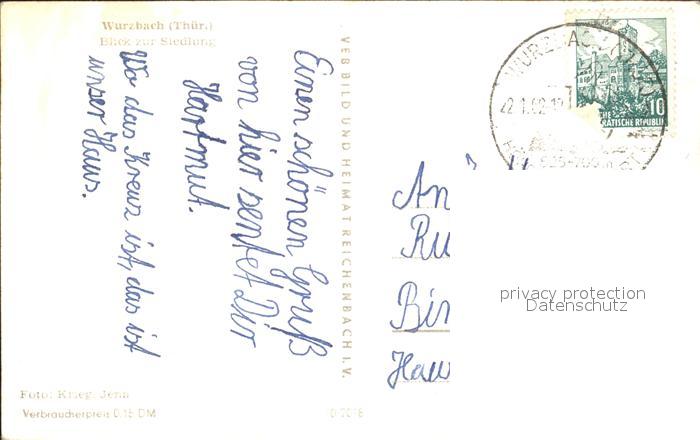 Wurzbach (Thür.)
Blick zur Siedlung
Einen schönen Gruß
von hier sentet Dir
Hartmut.
Wo das Kreuz ist, das ist
unser Haus.
VEB BILD UND HEIMAT REICHENBACH I. V.
WURZBACH
22.1.62-12
10
RATISCHE REPUBLIK
An
Ru
Bir
Hau
privacy protection
Datenschutz
Foto: Krieg, Jena
Verbraucherpreis 0,15 DM